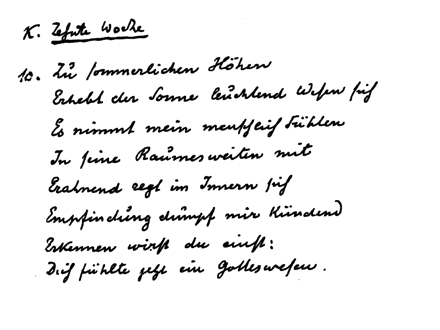 K. Zehnte Woche
10. Zu sommerlichen Höhen
Erhebt der Sonne leuchtend Wesen sich
Es nimmt mein menschlich Fühlen
In seine Raumesweiten mit
Erahnend regt im Innern sich
Empfindung dumpf mir kündend
Erkennen wirst du einst:
Dich fühlte jetzt ein Gotteswesen.